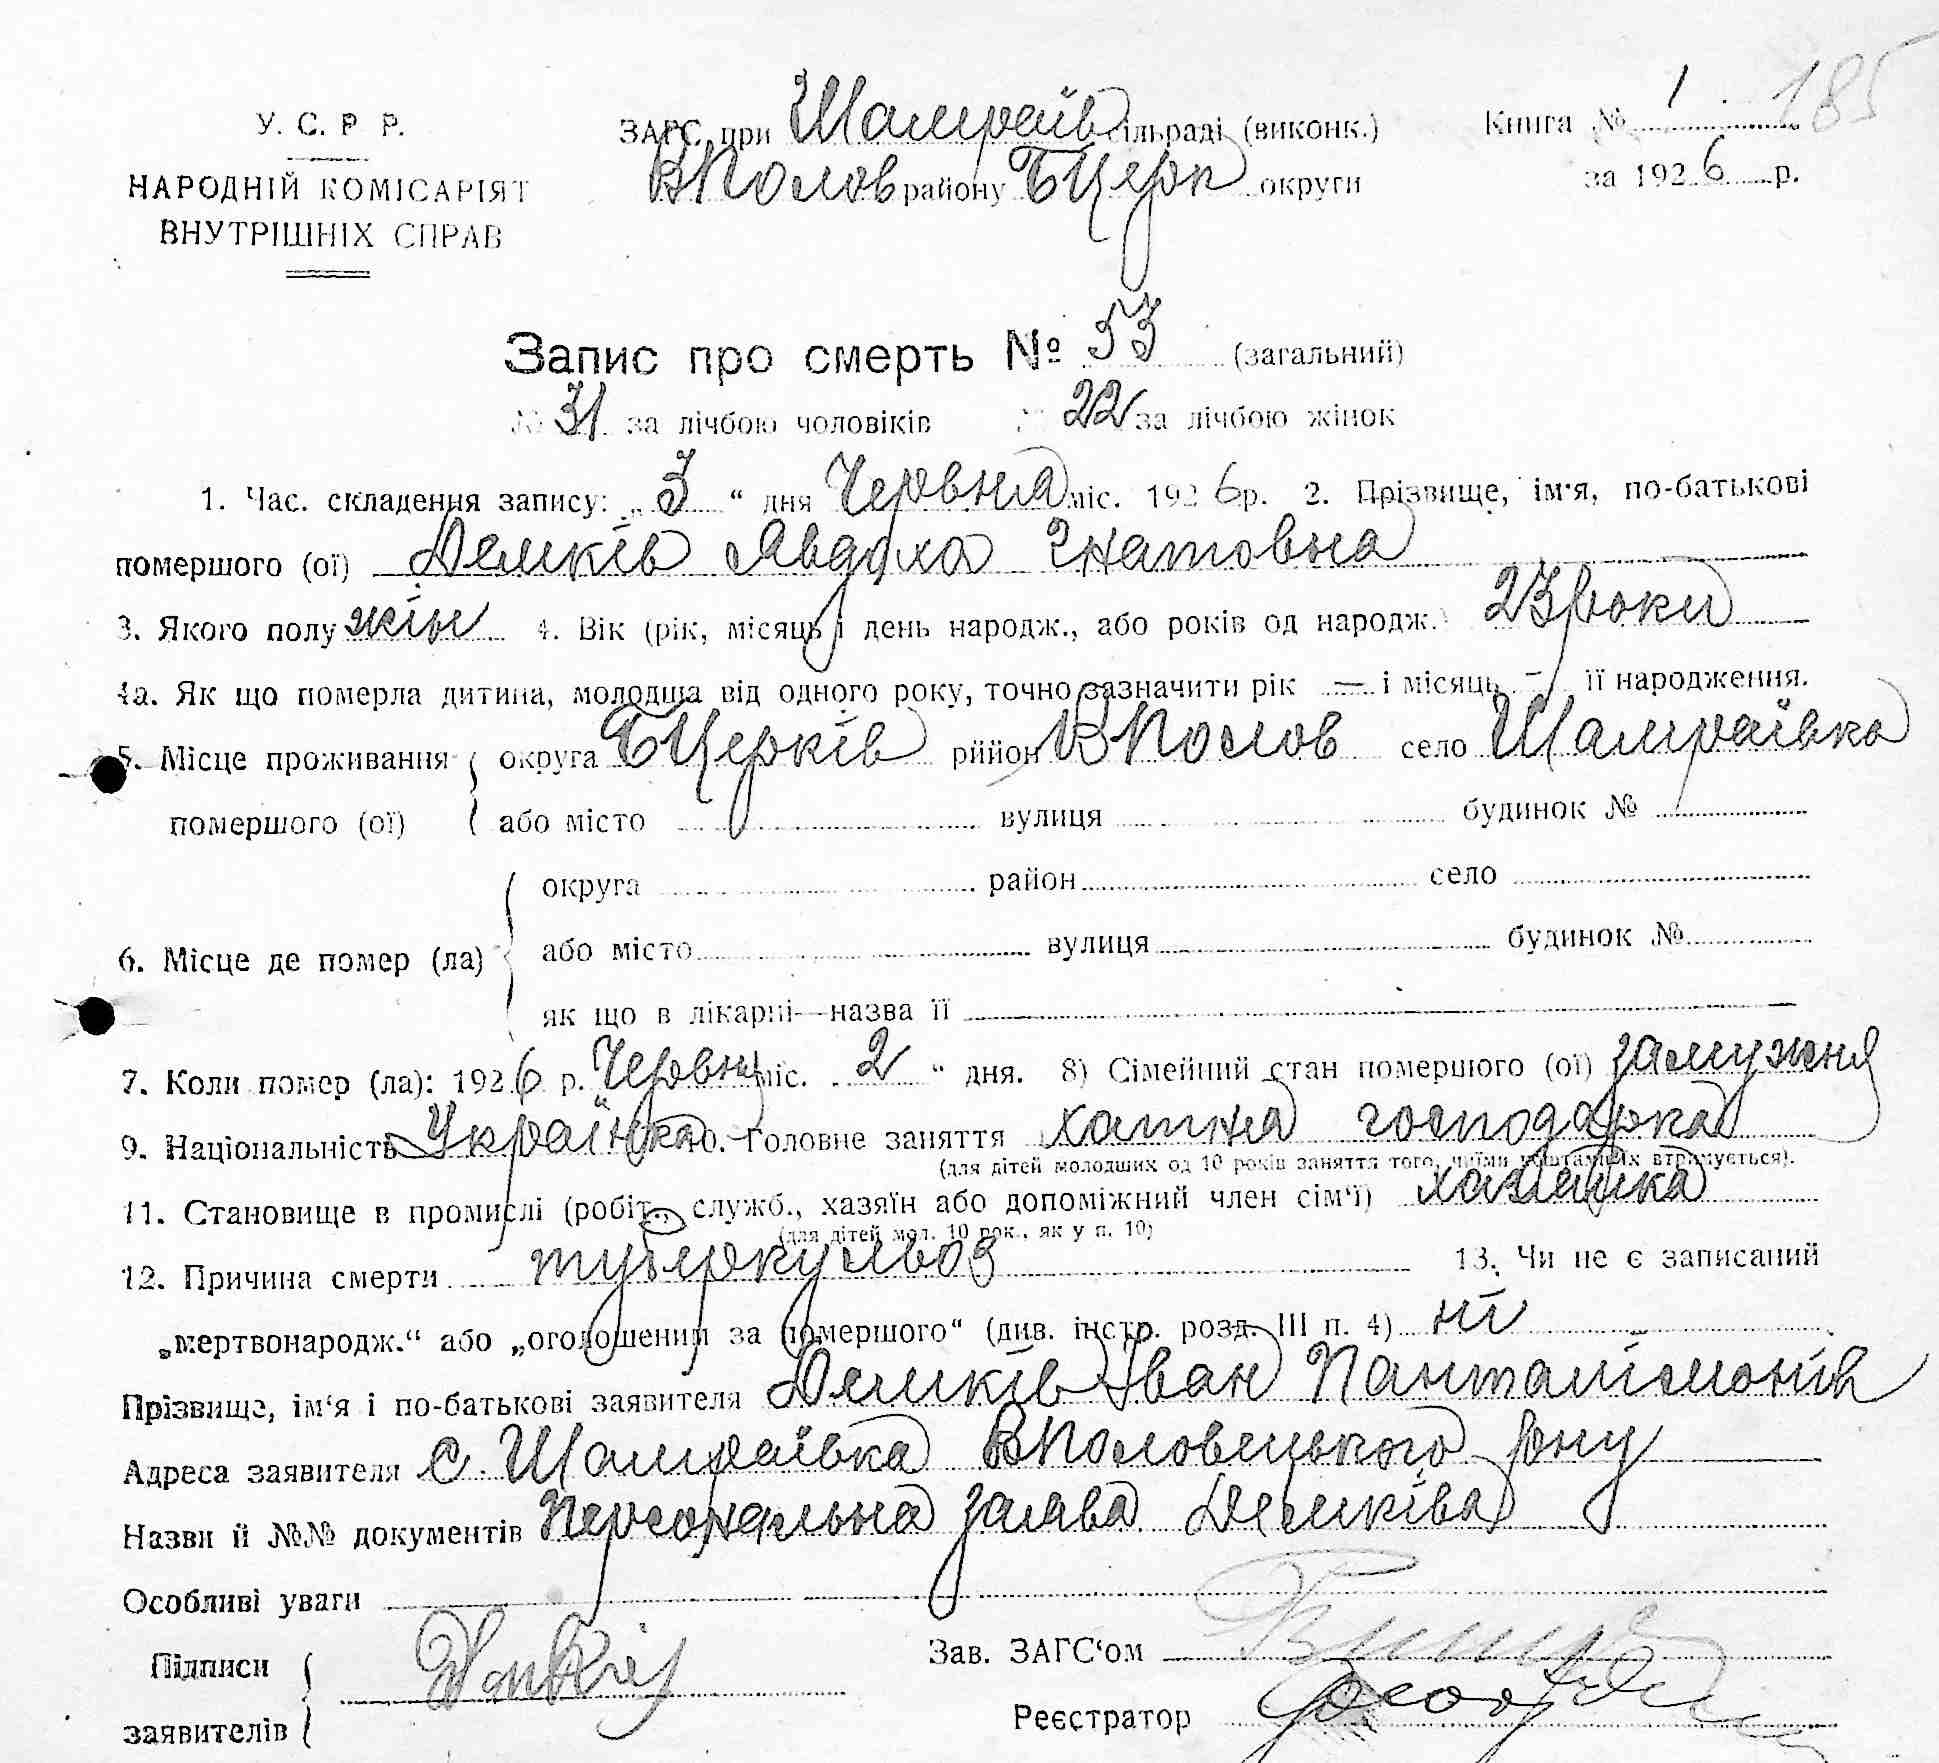 185
У. С. Р Р.
ЗАГС при Шамраїв сільраді (виконк.)
Книга № 1
НАРОДНІЙ КОМІСАРІЯТ
ВПолов району БЦерк округи
за 1926 р.
ВНУТРІШНІХ СПРАВ
Запис про смерть № 53 (загальний)
№ 31 за лічбою чоловіків № 22 за лічбою жінок
1. Час. складення запису: „3“ дня Червня міс. 1926 р. 2. Прізвище, ім'я, по-батькові
помершого (ої) Демків Явдоха Гнатовна
3. Якого полу жін 4. Вік (рік, місяць і день народж., або років од народж.) 23 роки
4а. Як що померла дитина, молодща від одного року, точно зазначити рік — і місяць — її народження.
5. Місце проживання округа БЦерків рййон ВПолов село Шамраївка
помершого (ої) або місто вулиця будинок №
округа район село
6. Місце де помер (ла) або місто вулиця будинок №
як що в лікарні—назва її —
7. Коли помер (ла): 1926 р. Червня міс. 2 “ дня. 8) Сімейний стан помершого (ої) замужня
9. Національність Українка 10. Головне заняття хатня господарка
(для дітей молодших од 10 років заняття того, чиїми коштами їх втримується).
11. Становище в промислі (робіт., служб., хазяїн або допоміжний член сім'ї) хазяйка
(для дітей мол. 10 рок., як у п. 10)
12. Причина смерти туберкульоз 13. Чи не є записаний
„мертвонародж.“ або „оголошеним за помершого“ (див. інстр. розд. III п. 4) ні
Прізвище, ім'я і по-батькові заявителя Демків Іван Панталімонів
Адреса заявителя с. Шамраївка ВПоловецького рну
Назви й №№ документів Персональна заява Демківа
Особливі уваги
Підписи
Зав. ЗАГС‘ом
заявителів
Реєстратор